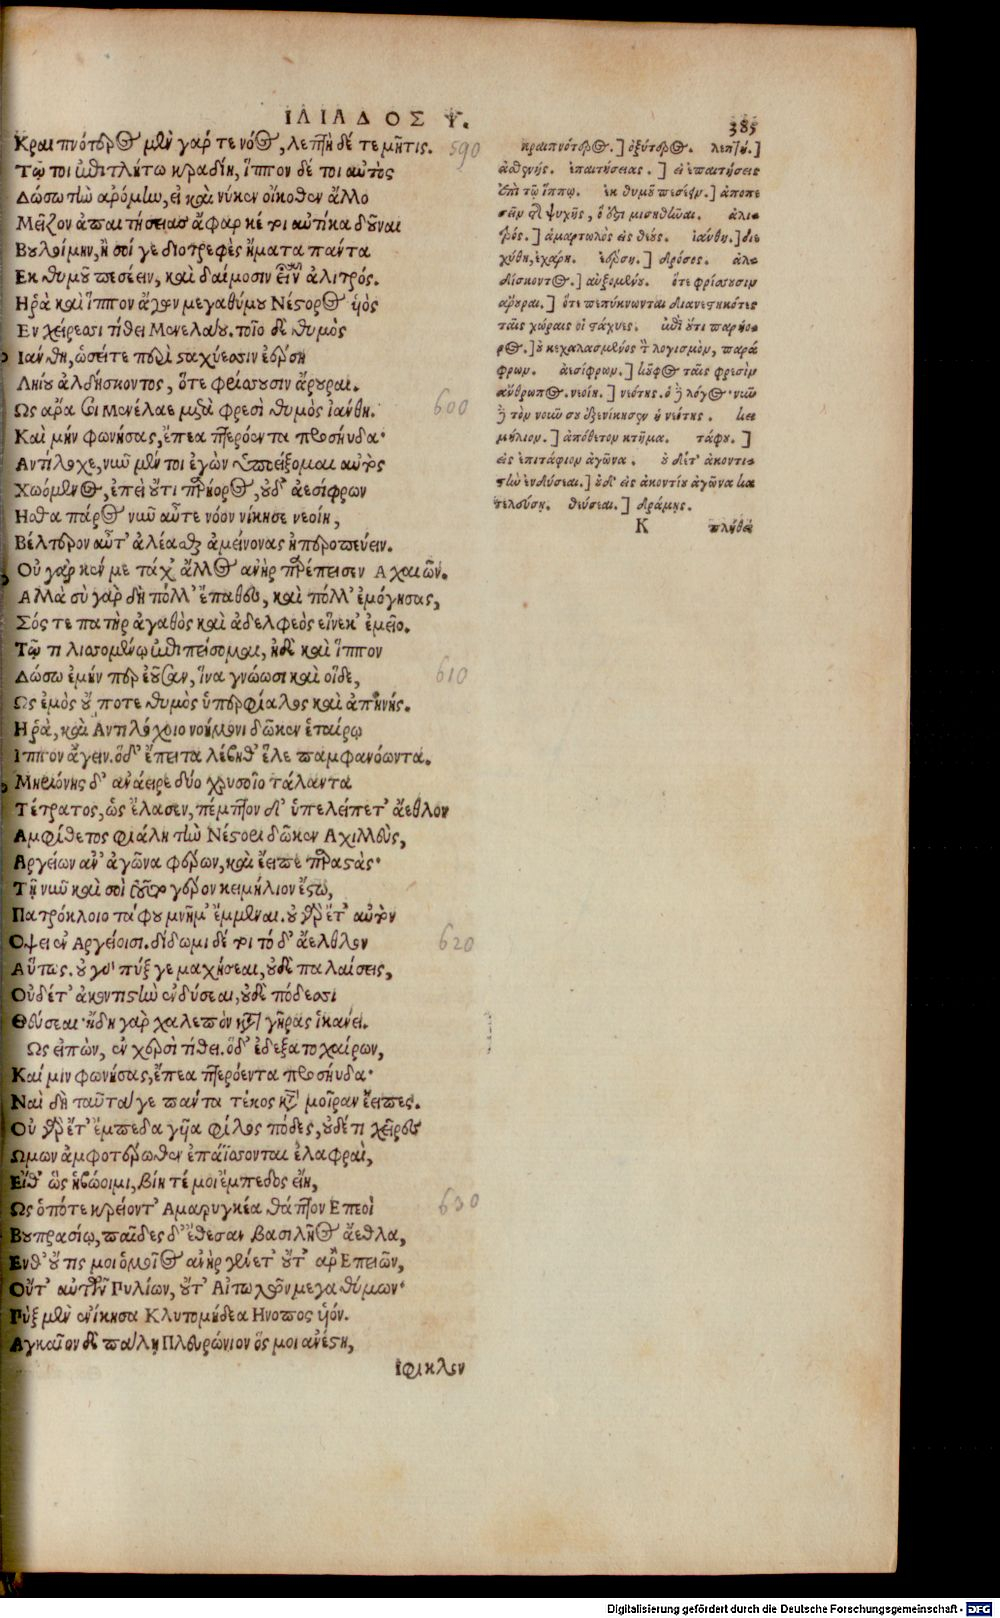 ΙΛΙΑΔΟΣ Ψ.
385
Κραιπνότερος μὲν γάρ τε νόος, λεπτὴ δέ τε μῆτις.
590
Τῷ τοι ἐπιτλήτω κραδίη, ἵππον δέ τοι αὐτὸς
Δώσω τὴν ἀρόμην, εἰ καὶ νύ κεν οἴκοθεν ἄλλο
Μεῖζον ἀπαιτήσειας ἄφαρ κέ τοι αὐτίκα δοῦναι
Βουλοίμην, ἢ σοί γε διοτρεφὲς ἤματα πάντα
Εκ θυμοῦ πεσέειν, καὶ δαίμοσιν εἶναι ἀλιτρός.
Ηῥὰ καὶ ἵππον ἄγων μεγαθύμου Νέστορος υἱὸς
Εν χείρεσσι τίθει Μενελάου. τοῖο δὲ θυμὸς
Ιάνθη, ὡσεί τε περὶ σταχύεσσιν ἐέρση
Ληΐου ἀλδήσκοντος, ὅτε φρίσσουσιν ἄρουραι.
Ως ἄρα σοι Μενέλαε μετὰ φρεσὶ θυμὸς ἰάνθη.
600
Καὶ μὴν φωνήσας, ἔπεα πτερόεντα προσηύδα·
Αντίλοχε, νῦν μέν τοι ἐγὼν ὑποείξομαι αὐτὸς
Χωόμενος, ἐπεὶ οὔτι παρήορος, οὐδ' ἀεσίφρων
Ησθα πάρος νῦν αὖτε νόον νίκησε νεοίη,
Βέλτερον αὖτ' ἀλέασθαι ἀμείνονας ἠπεροπεύειν.
Οὐ γάρ κέν με τάχ' ἄλλος ἀνὴρ παρέπεισεν Αχαιῶν.
Αλλὰ σὺ γὰρ δὴ πόλλ' ἔπαθες, καὶ πόλλ' ἐμόγησας,
Σός τε πατὴρ ἀγαθὸς καὶ ἀδελφεὸς εἵνεκ' ἐμεῖο.
Τῷ τι λισσομένῳ ἐπιπείσομαι, ἠδὲ καὶ ἵππον
Δώσω ἐμήν περ ἐοῦσαν, ἵνα γνώωσι καὶ οἵδε,
610
Ως ἐμὸς οὔ ποτε θυμὸς ὑπερφίαλος καὶ ἀπηνής.
Ηῥὰ, καὶ Αντιλόχοιο νοήμονι δῶκεν ἑταίρῳ
Ιππον ἄγειν. ὁ δ' ἔπειτα λέβηθ' ἕλε παμφανόωντα.
Μηριόνης δ' ἀνάειρε δύο χρυσοῖο τάλαντα
Τέτρατος, ὡς ἔλασεν, πέμπτον δ' ὑπελείπετ' ἄεθλον
Αμφίθετος φιάλη τὴν Νέστορι δῶκεν Αχιλλεὺς,
Αργείων ἀν' ἀγῶνα φέρων, καὶ ἔειπε παραστάς·
Τῆ νῦν καὶ σοὶ τοῦτο γέρον κειμήλιον ἔστω,
Πατρόκλοιο τάφου μνῆμ' ἔμμεναι. οὐ γὰρ ἔτ' αὐτὸν
Οψει ἐν Αργείοισι. δίδωμι δέ τοι τόδ' ἄεθλον
620
Αὔτως. οὐ γὰρ πύξ γε μαχήσεαι, οὐδὲ παλαίσεις,
Οὐδέτ' ἀκοντιστὺν ἐνδύσεαι, οὐδὲ πόδεσσι
Θεύσεαι· ἤδη γὰρ χαλεπὸν κατὰ γῆρας ἱκάνει.
Ως εἰπὼν, ἐν χερσὶ τίθει. ὁ δ' ἐδέξατο χαίρων,
Καί μιν φωνήσας, ἔπεα πτερόεντα προσηύδα·
Ναὶ δὴ ταῦτά γε πάντα τέκος κατὰ μοῖραν ἔειπες.
Οὐ γὰρ ἔτ' ἔμπεδα γυῖα φίλος πόδες, οὐδέτι χεῖρες
Ωμων ἀμφοτέρωθεν ἐπαΐσσονται ἐλαφραὶ,
Εἴθ' ὣς ἡβώοιμι, βίη τέ μοι ἔμπεδος εἴη,
Ως ὁπότε κρείοντ' Αμαρυγκέα θάπτον Επειοὶ
630
Βουπρασίῳ, παῖδες δ' ἔθεσαν βασιλῆος ἄεθλα,
Ενθ' οὔτις μοι ὁμοῖος ἀνὴρ γένετ' οὔτ' ἄρ' Επειῶν,
Οὔτ' αὐτῶν Πυλίων, οὔτ' Αἰτωλῶν μεγαθύμων·
Πὺξ μὲν ἐνίκησα Κλυτομήδεα Ηνοπος υἱόν.
Αγκαῖον δὲ πάλῃ Πλευρώνιον ὅς μοι ἀνέστη,
Ιφικλον
κραιπνότερος.] ὀξύτερος. λεπτή.]
ἀσθενής. ἀπαιτήσειας.] εἰ ἀπαιτήσεις
ἐπὶ τῷ ἵππῳ. ἐκ θυμοῦ πεσέειν.] ἀποπε
σεῖν τῆς ψυχῆς, ὅ ἐστι μισηθῆναι. ἀλι-
τρός.] ἁμαρτωλὸς εἰς θεούς. ἰάνθη.] διε
χύθη, ἐχάρη. ἐέρση.] δρόσος. ἀλ-
δίσκοντος.] αὐξομένου. ὅτε φρίσσουσιν
ἄρουραι.] ὅτε πεπύκνωνται διανεστηκότες
ταῖς χώραις οἱ στάχυες. ἐπεὶ οὔτι παρήο-
ρος.] οὐ κεχαλασμένος τὸν λογισμὸν, παρά
φρων. ἀεσίφρων.] κοῦφος ταῖς φρεσὶν
ἄνθρωπος. νεοίη.] νεότης. ὁ δὲ λόγος· νῦν
δὲ τὸν νοῦν σου ἐξενίκησεν ἡ νεότης. κει
μήλιον.] ἀπόθετον κτῆμα. τάφου.]
εἰς ἐπιτάφιον ἀγῶνα. οὐδέτ' ἀκοντι-
στὺν ἐνδύσεαι.] οὐδ' εἰς ἀκοντίου ἀγῶνα κα
τελεύσῃ. θεύσεαι.] δράμῃς.
Κ πλήθει
Digitalisierung gefördert durch die Deutsche Forschungsgemeinschaft - DFG